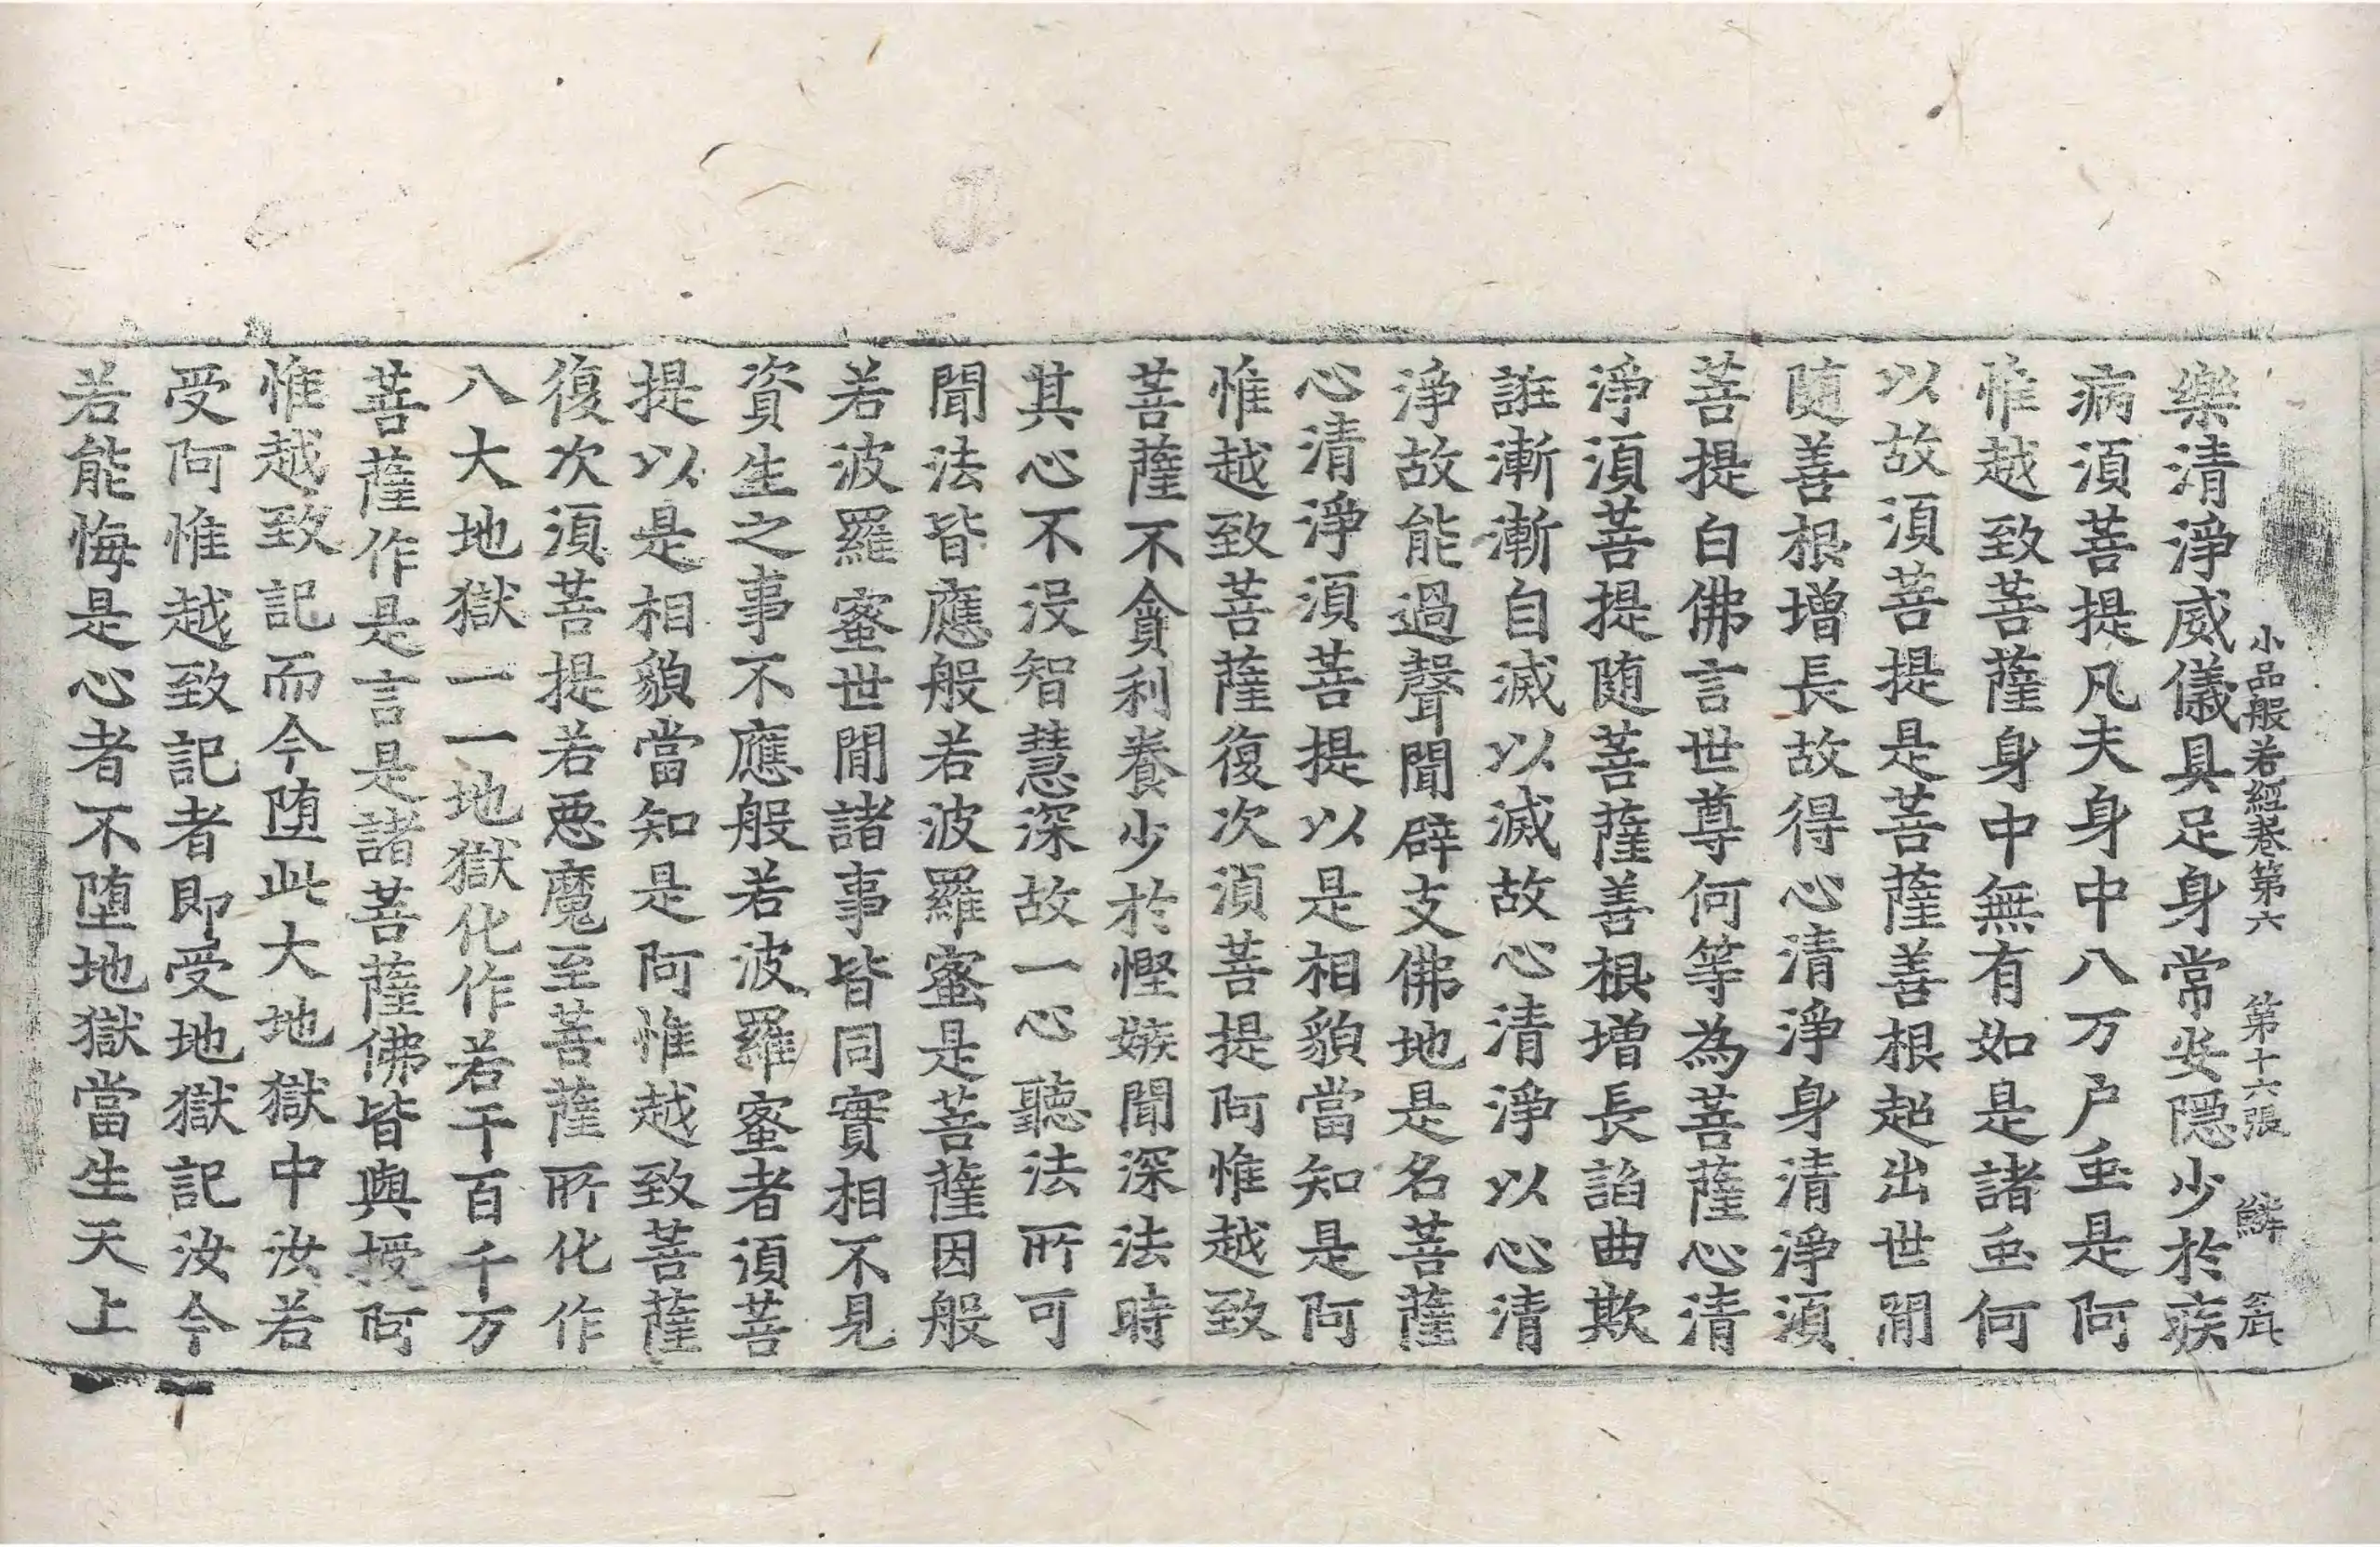 小品般若經卷第六　第十六張　鱗
樂清淨威儀具足身常安隱少於疾
病須菩提凡夫身中八万户虫是阿
惟越致菩薩身中無有如是諸虫何
以故須菩提是菩薩善根超出世閒
随善根增長故得心清淨身清淨須
菩提白佛言世尊何等為菩薩心清
淨須菩提随菩薩善根增長諂曲欺
誑漸漸自滅以滅故心清淨以心清
淨故能過聲聞辟支佛地是名菩薩
心清淨須菩提以是相貌當知是阿
惟越致菩薩復次須菩提阿惟越致
菩薩不貪利養少於慳嫉聞深法時
其心不没智慧深故一心聽法所可
聞法皆應般若波羅蜜是菩薩因般
若波羅蜜世閒諸事皆同實相不見
資生之事不應般若波羅蜜者須菩
提以是相貌當知是阿惟越致菩薩
復次須菩提若惡魔至菩薩所化作
八大地獄一一地獄化作若干百千万
菩薩作是言是諸菩薩佛皆與授阿
惟越致記而今堕此大地獄中汝若
受阿惟越致記者即受地獄記汝今
若能悔是心者不堕地獄當生天上